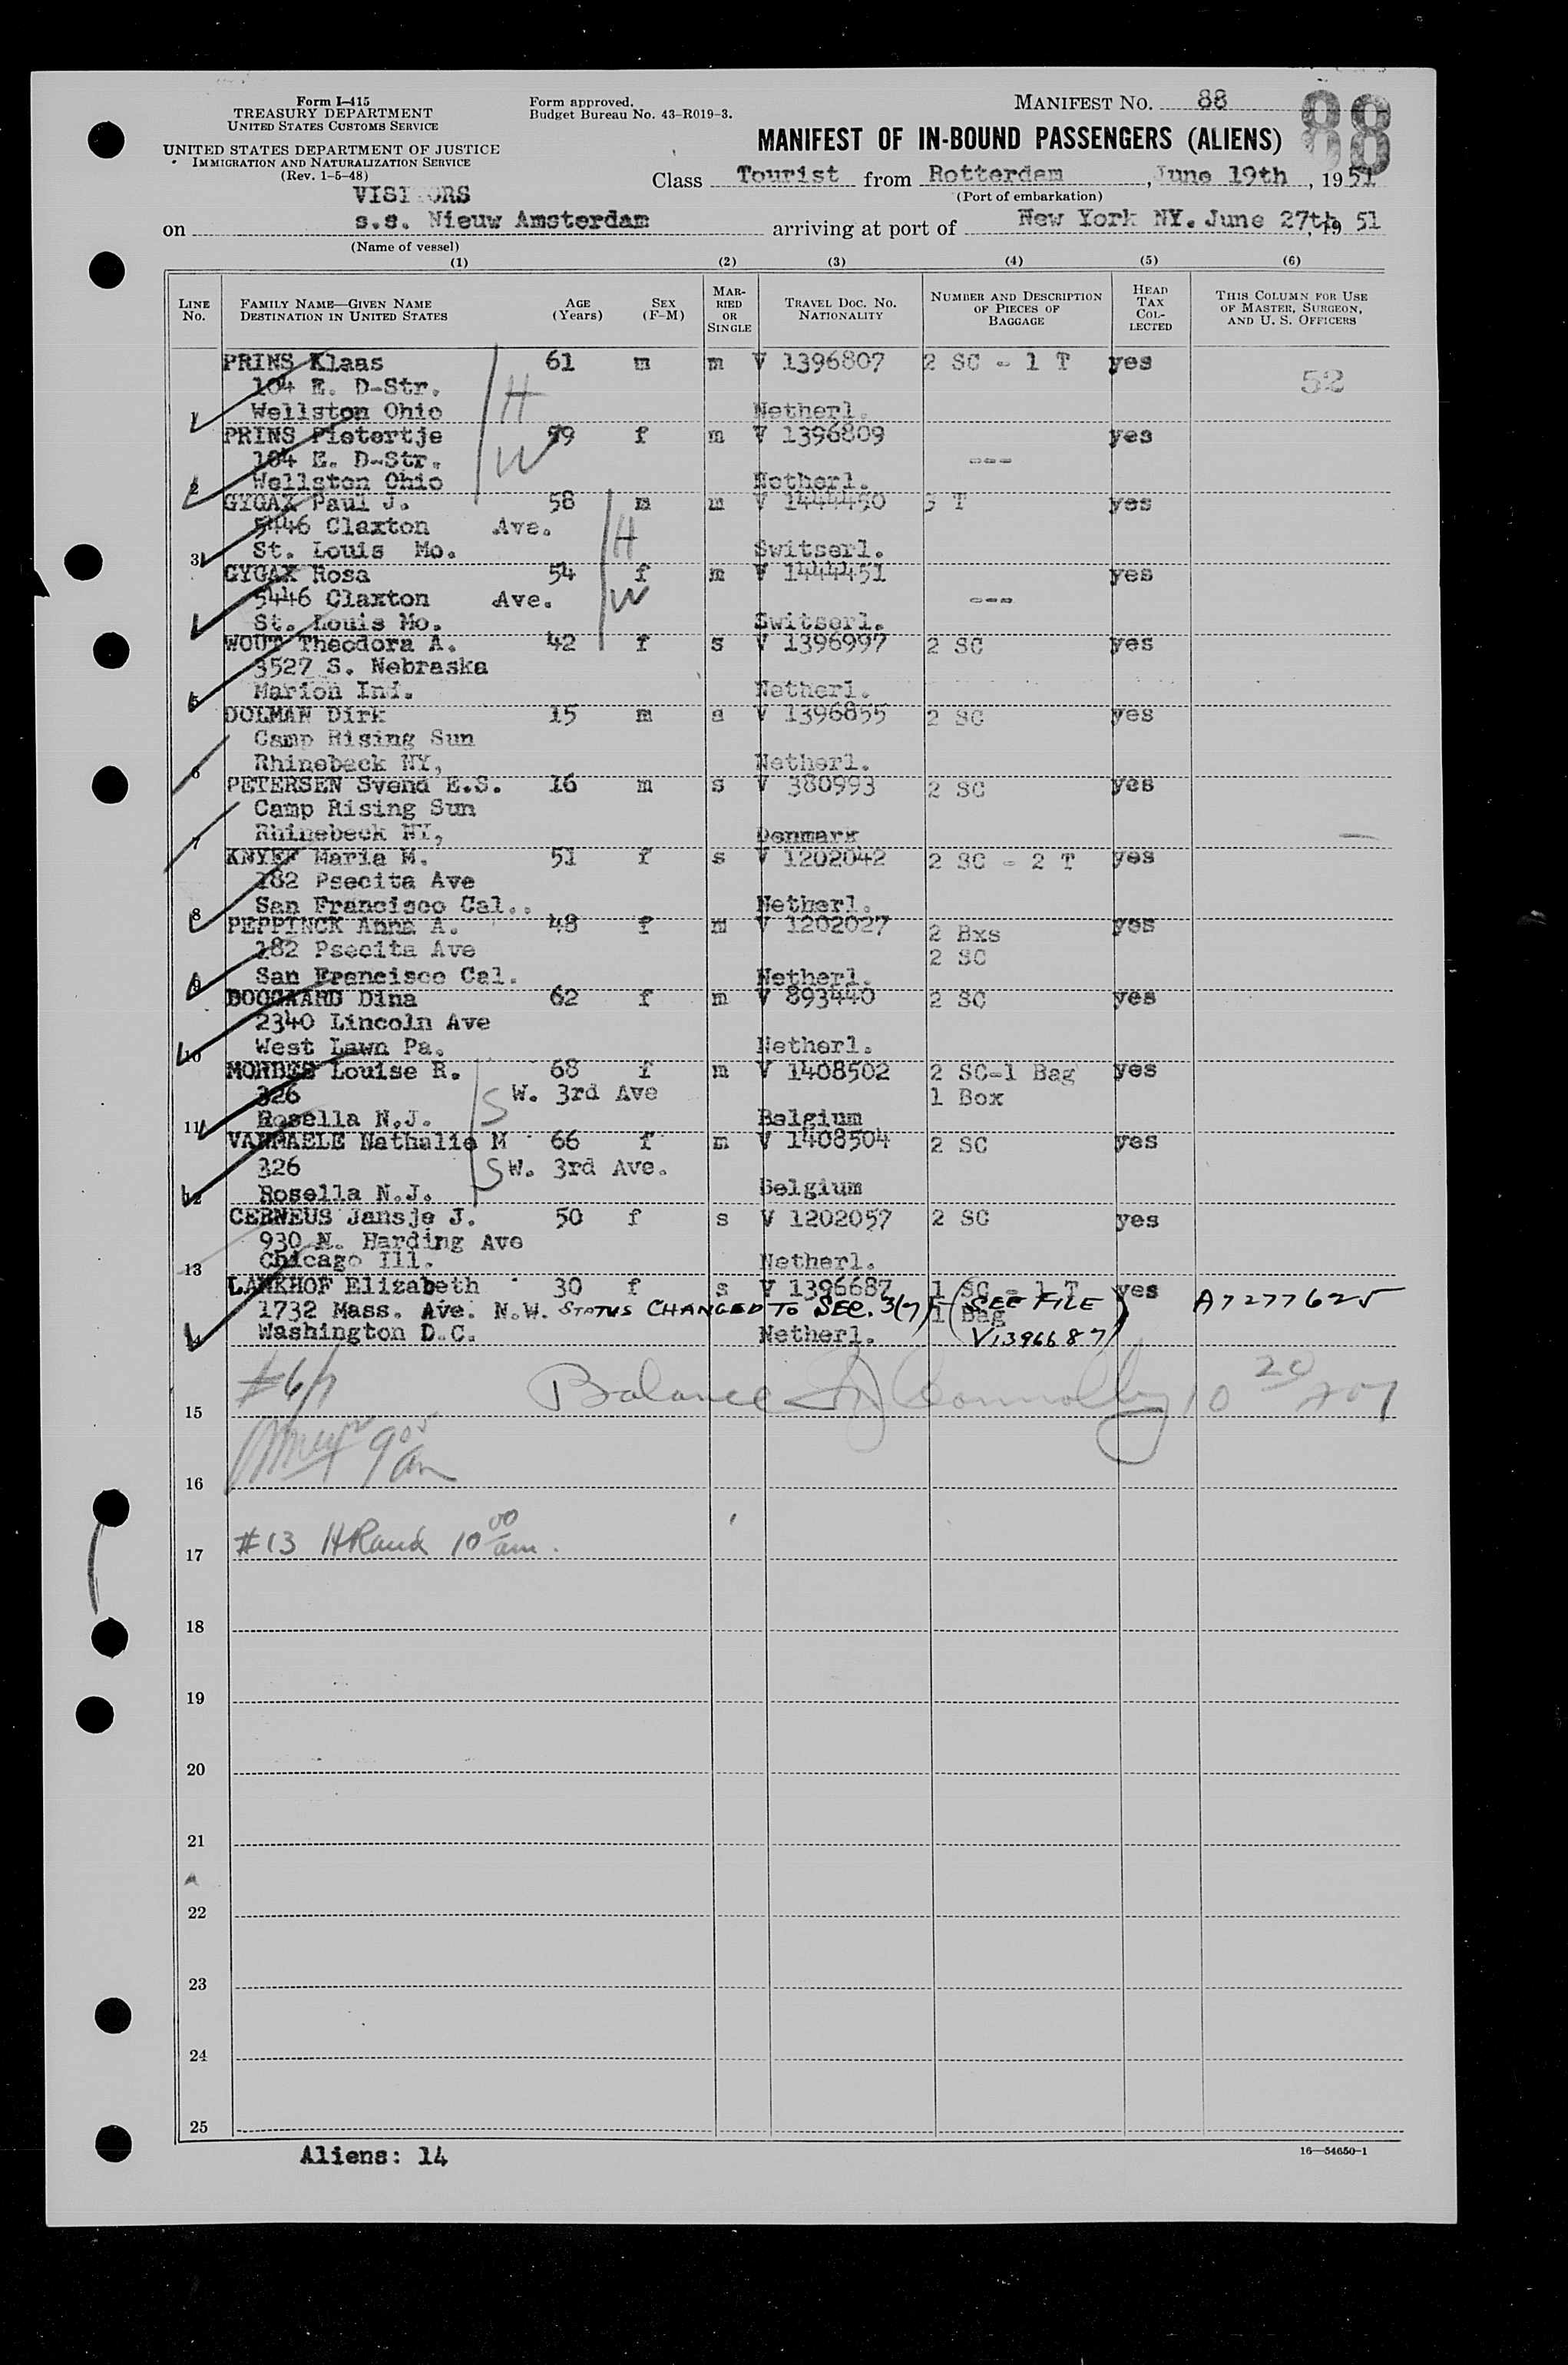 Form I-415
TREASURY DEPARTMENT
UNITED STATES CUSTOMS SERVICE
UNITED STATES DEPARTMENT OF JUSTICE
IMMIGRATION AND NATURALIZATION SERVICE
(Rev. 1-5-48)
Form approved.
Budget Bureau No. 43-R019-3.
MANIFEST NO. 88
88
MANIFEST OF IN-BOUND PASSENGERS (ALIENS)
Class Tourist from Rotterdam, June 19th, 1951
(Port of embarkation)
VISITORS
on s.s. Nieuw Amsterdam arriving at port of New York NY. June 27th, 19 51
(Name of vessel)
(1) (2) (3) (4) (5) (6)
LINE No. FAMILY NAME—GIVEN NAME DESTINATION IN UNITED STATES AGE (Years) SEX (F-M) MARRIED OR SINGLE TRAVEL DOC. NO. NATIONALITY NUMBER AND DESCRIPTION OF PIECES OF BAGGAGE HEAD TAX COLLECTED THIS COLUMN FOR USE OF MASTER, SURGEON, AND U. S. OFFICERS
PRINS Klaas 61 m m V 1396807 2 SC - 1 T yes
104 E. D-Str. H 52
1 Wellston Ohio Netherl.
PRINS Pietertje 59 f m V 1396809 yes
104 E. D-Str. W ---
2 Wellston Ohio Netherl.
GYGAX Paul J. 58 m m V 1444450 3 T yes
5446 Claxton Ave. H
3 St. Louis Mo. Switserl.
GYGAX Rosa 54 f m V 1444451 yes
5446 Claxton Ave. W ---
St. Louis Mo. Switserl.
WOUT Theodora A. 42 f s V 1396997 2 SC yes
3527 S. Nebraska
5 Marion Ind. Netherl.
DOLMAN Dirk 15 m s V 1396855 2 SC yes
Camp Rising Sun
6 Rhinebeck NY, Netherl.
PETERSEN Svend E.S. 16 m s V 380993 2 SC yes
Camp Rising Sun
7 Rhinebeck NY, Denmark
KNYFF Maria M. 51 f s V 1202042 2 SC - 2 T yes
182 Psecita Ave
8 San Francisco Cal.. Netherl.
PEPPINCK Anna A. 48 f m V 1202027 2 Bxs yes
182 Psecita Ave 2 SC
9 San Francisco Cal. Netherl.
BOOGAARD Dina 62 f m V 893440 2 SC yes
2340 Lincoln Ave
10 West Lawn Pa. Netherl.
Louise R. 68 f m V 1408502 2 SC-1 Bag yes
326 S W. 3rd Ave 1 Box
11 Rosella N.J. Belgium
Nathalie M 66 f m V 1408504 2 SC yes
326 S W. 3rd Ave.
12 Rosella N.J. Belgium
CERNEUS Jansje J. 50 f s V 1202057 2 SC yes
930 N. Harding Ave
13 Chicago Ill. Netherl.
LANKHOF Elizabeth 30 f s V 1396687 1 SC - 1 T yes
1732 Mass. Ave. N.W. STATUS CHANGED TO SEC. 3(7)F (SEE FILE 1 Bag A7277625
14 Washington D.C. Netherl. V1396687)
#6/7 Balance Connolly 10 20
15
9 05 am
16
#13 10 00 am.
17
18
19
20
21
22
23
24
25
Aliens: 14
16—54650-1